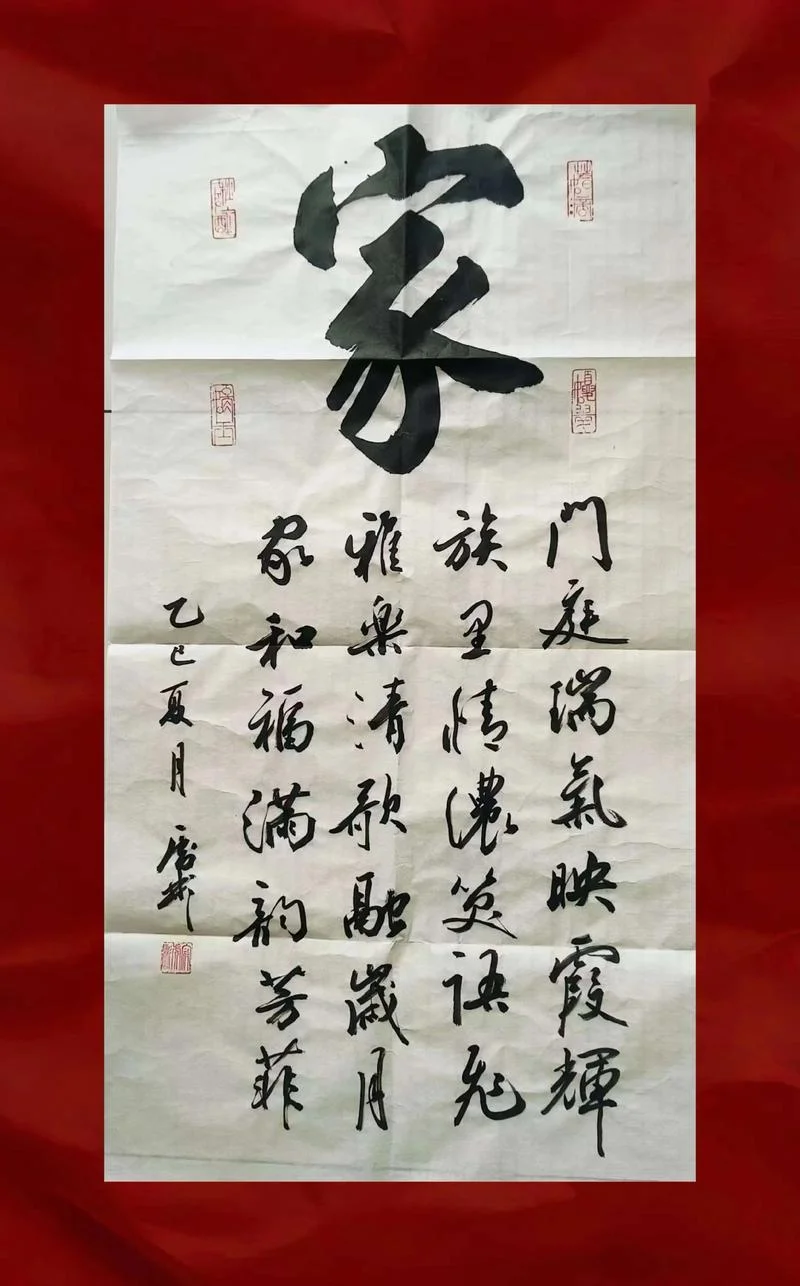 家
門庭瑞氣映霞輝
族里情濃笑語飛
雅樂清歌融歲月
家和福滿韵芳菲
乙巳夏月